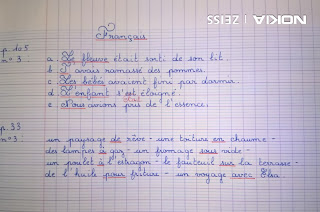 NOKIA | ZEISS
Français
p. 105
n° 3 : a. Le fleuve était sorti de son lit.
b. J'avais ramassé des pommes.
c. Les bébés avaient fini par dormir.
d. L'enfant s'est éloigné.
était
e. Nous avions pris de l'essence.
p. 33
n° 3 : un paysage de rêve - une toiture en chaume -
des lampes à gaz - un fromage sous vide -
un poulet à l'estragon - le fauteuil sur la terrasse -
de l'huile pour friture - un voyage avec Elsa.